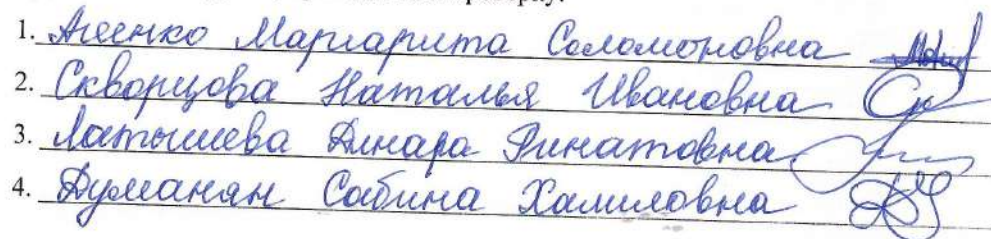 проверку.
1. Агеенко Маргарита Соломоновна
2. Скворцова Наталья Ивановна
3. Латышева Динара Ринатовна
4. Думанян Сабина Халиловна